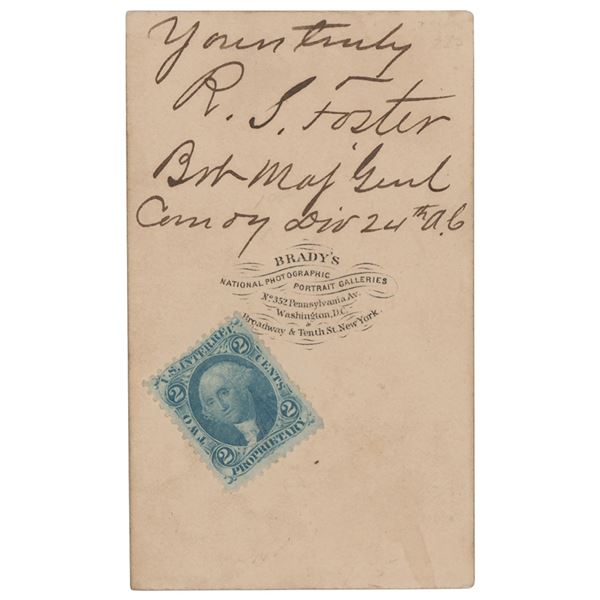 Yours truly
R. S. Foster
Bvt Maj Genl
Comdg Div 24th A.C
BRADY'S
NATIONAL PHOTOGRAPHIC PORTRAIT GALLERIES
No. 352 Pennsylvania Av.
Washington, D.C.
&
Broadway & Tenth St. New York.
U.S. INTER. REV.
2 CENTS. 2
TWO
2 PROPRIETARY 2